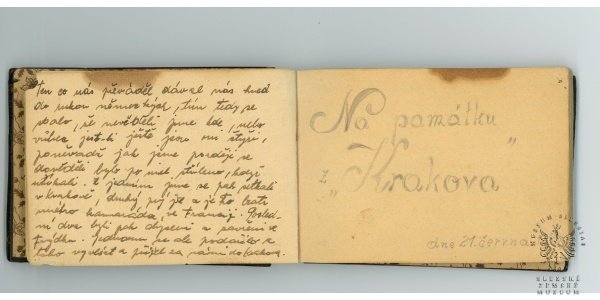 Ten co nás převáděl dával nás hned
do rukou německých, tím tedy se
stalo, že nevěděli jsme kde, nebo
vůbec jest-li ještě jsou mi štyři,
poněvadž jak jsme později se
dověděli bylo po nich stříleno, když
utíkali. S jedním jsme se pak setkali
v Krakově, druhý prý jest a je to bratr
mého kamaráda, ve Francii. Posled-
ní dva byli pak chyceni a zavřeni v
Jednomu se ale podařilo z
toho vyvléct a přijel za námi do Krakova.
Na památku
z „Krakova"
dne 21. června
MUZEUM SLEZSKÉ
SLEZSKÉ
ZEMSKÉ
MUZEUM